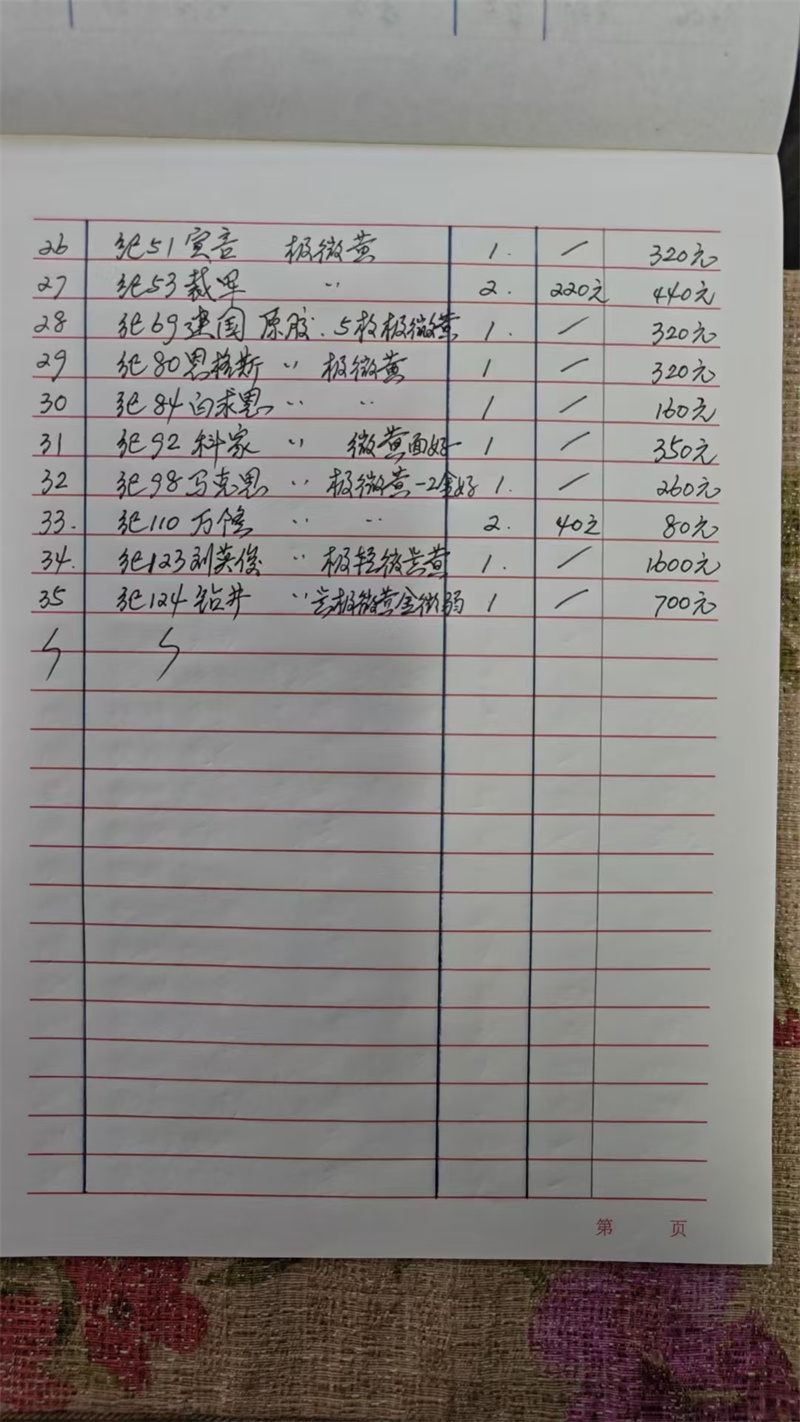 26 纪51宣言 极微黄 1. / 320元
27 纪53裁军 〃 2. 220元 440元
28 纪69建国 原胶.5枚极微黄 1. / 320元
29 纪80恩格斯 〃 极微黄 1 / 320元
30 纪84白求恩 〃 〃 1 / 160元
31 纪92科家 〃 微黄面好 1 / 350元
32 纪98马克思 〃 极微黄-2全好 1. / 260元
33. 纪110万隆 〃 〃 2. 40元 80元
34. 纪123刘英俊 〃 极轻微黄 1. / 1600元
35 纪124钻井 〃 极微黄金微弱 1 / 700元
第 页